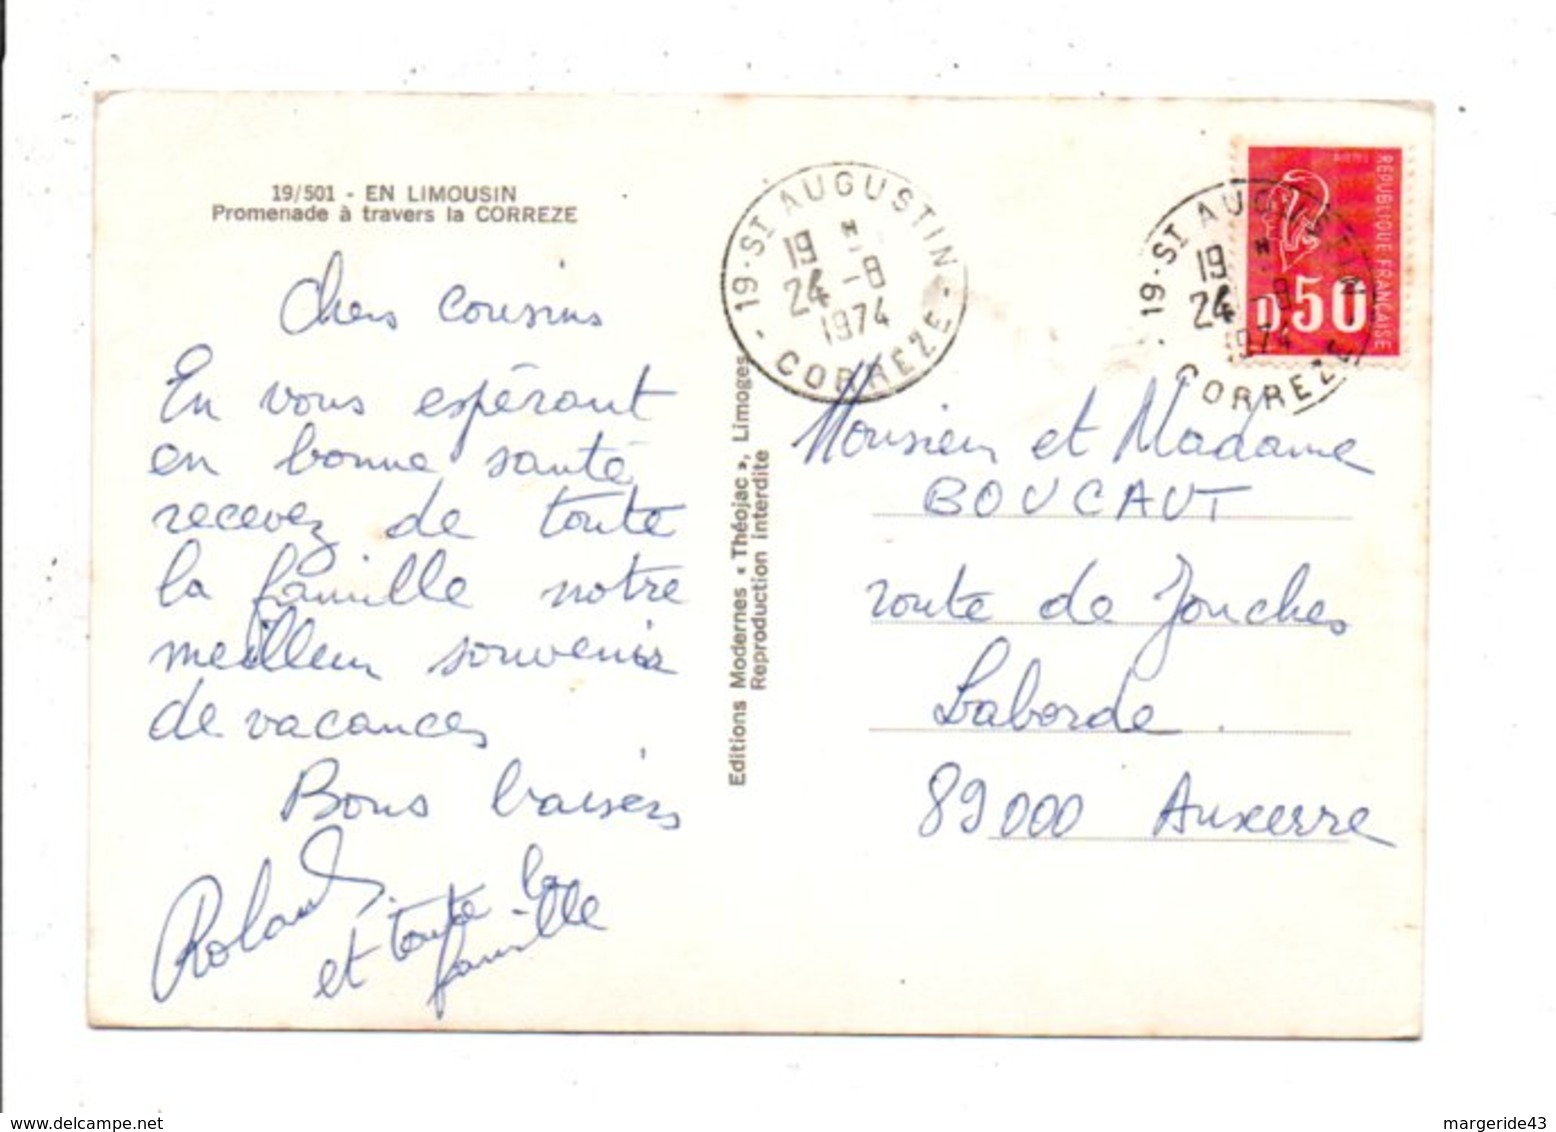 19/501 - EN LIMOUSIN
Promenade à travers la CORREZE
Chers cousins
En vous espérant
en bonne santé
recevez de toute
la famille notre
meilleur souvenir
de vacances
Bons baisers
Roland
et toute la
famille
Editions Modernes « Théojac », Limoges
Reproduction interdite
19 - ST AUGUSTIN
19 H
24 -8
1974
- CORREZE -
19 - ST AUGUSTIN
19 H
24 -8
1974
CORREZE
REPUBLIQUE FRANÇAISE
0,50
Monsieur et Madame
BOUCAUT
route de Jonches
Laborde.
89000 Auxerre
delcampe.net
margeride43